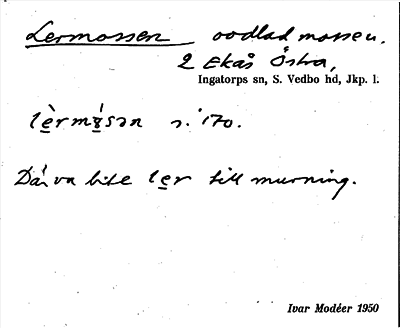 Lermossen oodlad mosse u.
2 Ekås Östra,
Ingatorps sn, S. Vedbo hd, Jkp. l.
lèrmå̀sən
Dä va lite ler till murning.
Ivar Modéer 1950